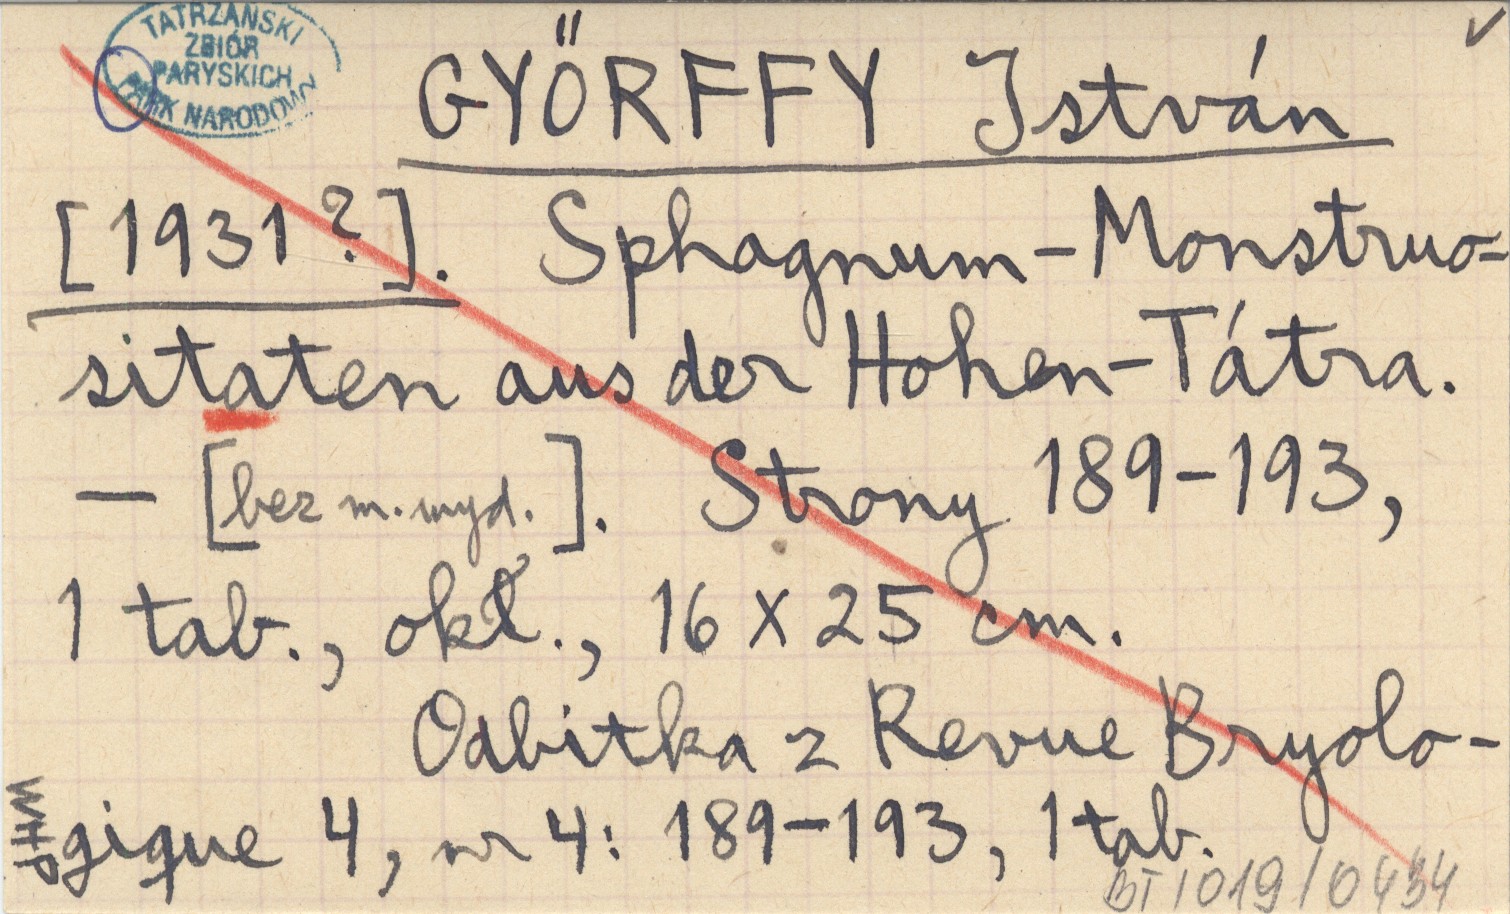 TATRZAŃSKI
ZBIÓR
PARYSKICH
PARK NARODOWY
GYŐRFFY István
[1931?]. Sphagnum-Monstruo-
sitaten aus der Hohen-Tátra.
— [bez m. wyd.]. Strony 189-193,
1 tab., okł., 16 x 25 cm.
Odbitka z Revue Bryolo-
gique 4, nr 4: 189-193, 1 tab.
WHP
BT/019/0434